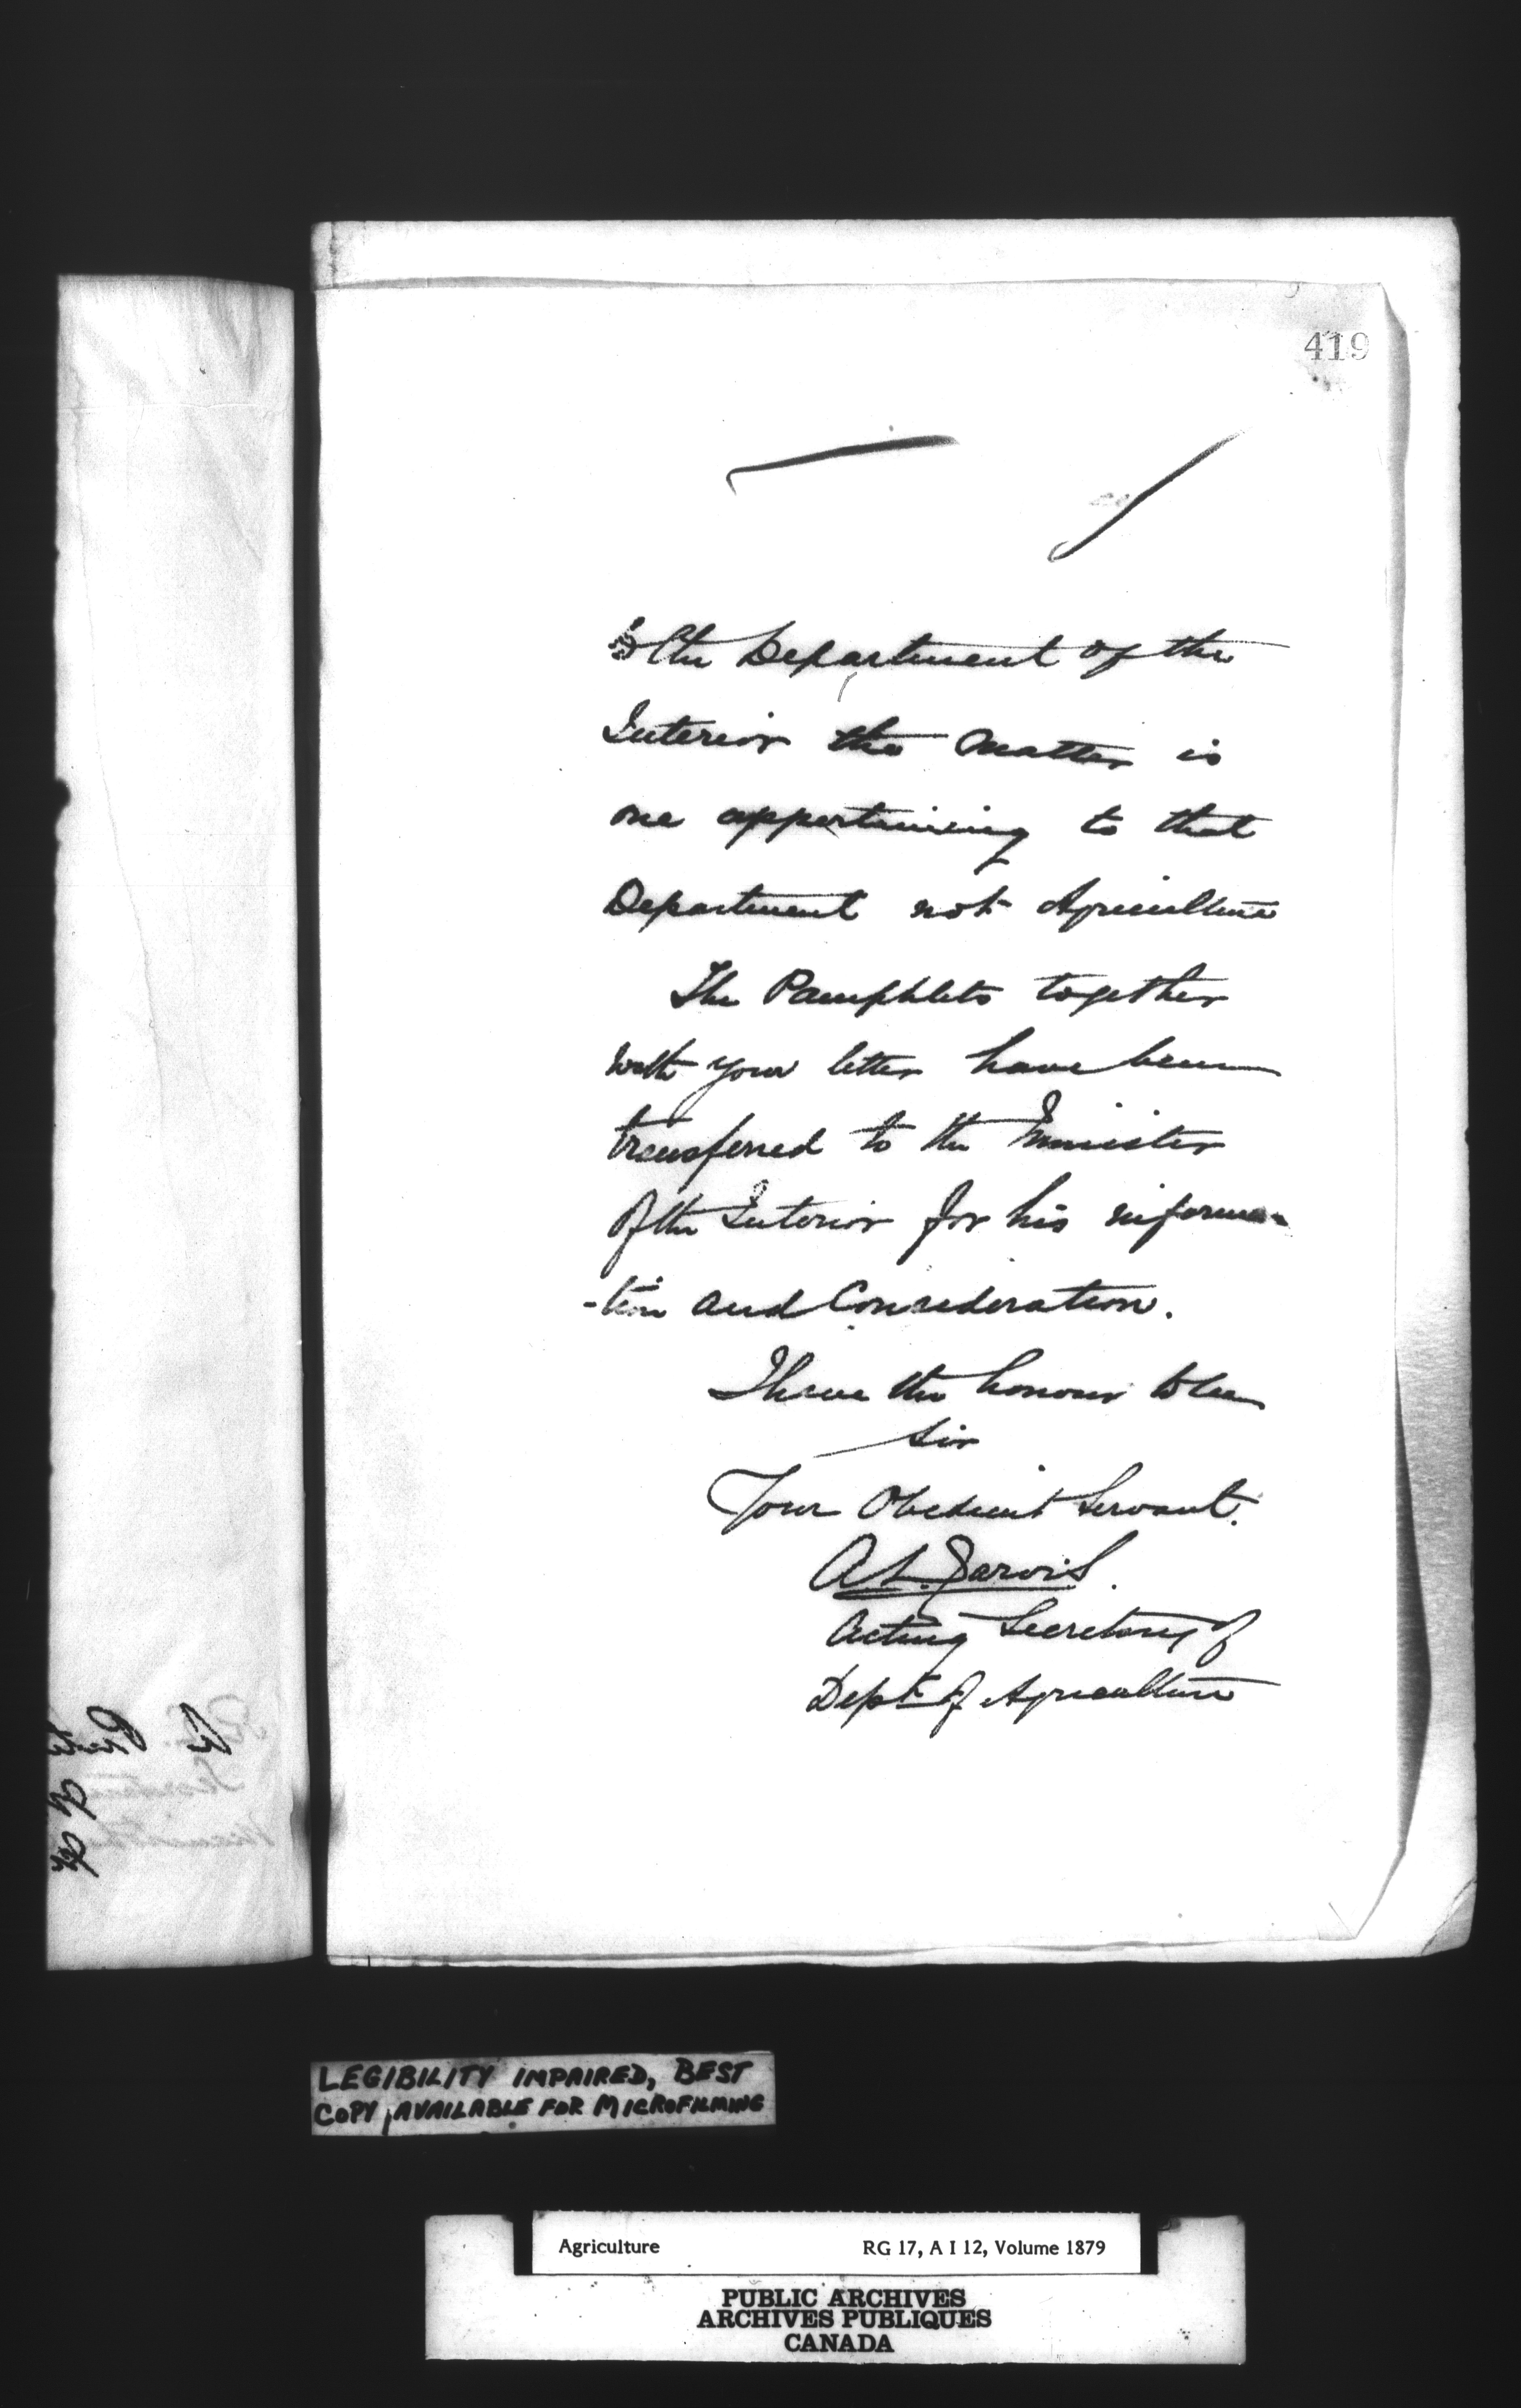 419
to the Department of the
Interior the matter is
one appertaining to that
Department not Agriculture
The Pamphlets together
with your letter have been
transferred to the Minister
of the Interior for his informa-
-tion and Consideration.
I have the honour to be
Sir
Your Obedient Servant.
A L. Jarvis.
Acting Secretary of
Dept of Agriculture
LEGIBILITY IMPAIRED, BEST
COPY AVAILABLE FOR MICROFILMING
Agriculture RG 17, A I 12, Volume 1879
PUBLIC ARCHIVES
ARCHIVES PUBLIQUES
CANADA